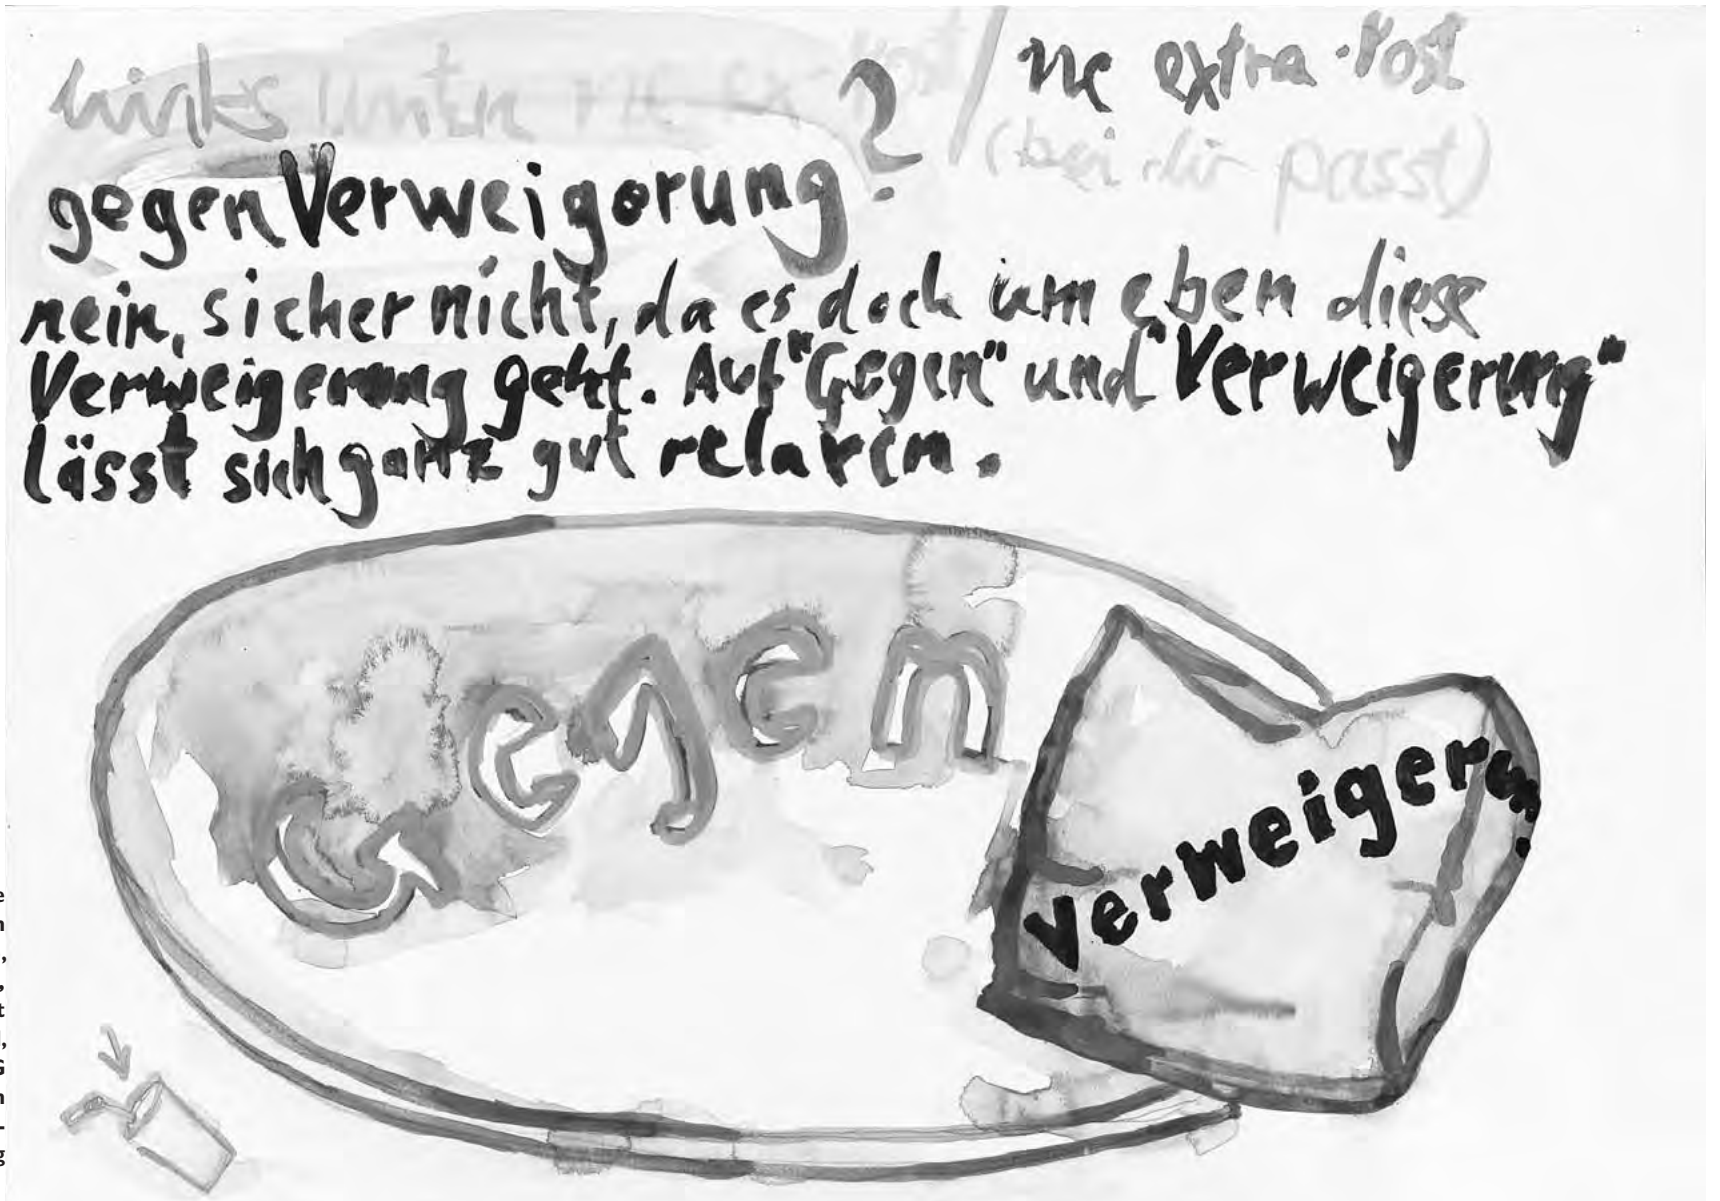 links unten ne ex Post / ne extra-Post
(bei dir passt)
gegen Verweigerung?
nein, sicher nicht, da es doch um eben diese
Verweigerung geht. Auf "Gegen" und "Verweigerung"
lässt sich ganz gut relaxen.
Gegen
Verweigerun